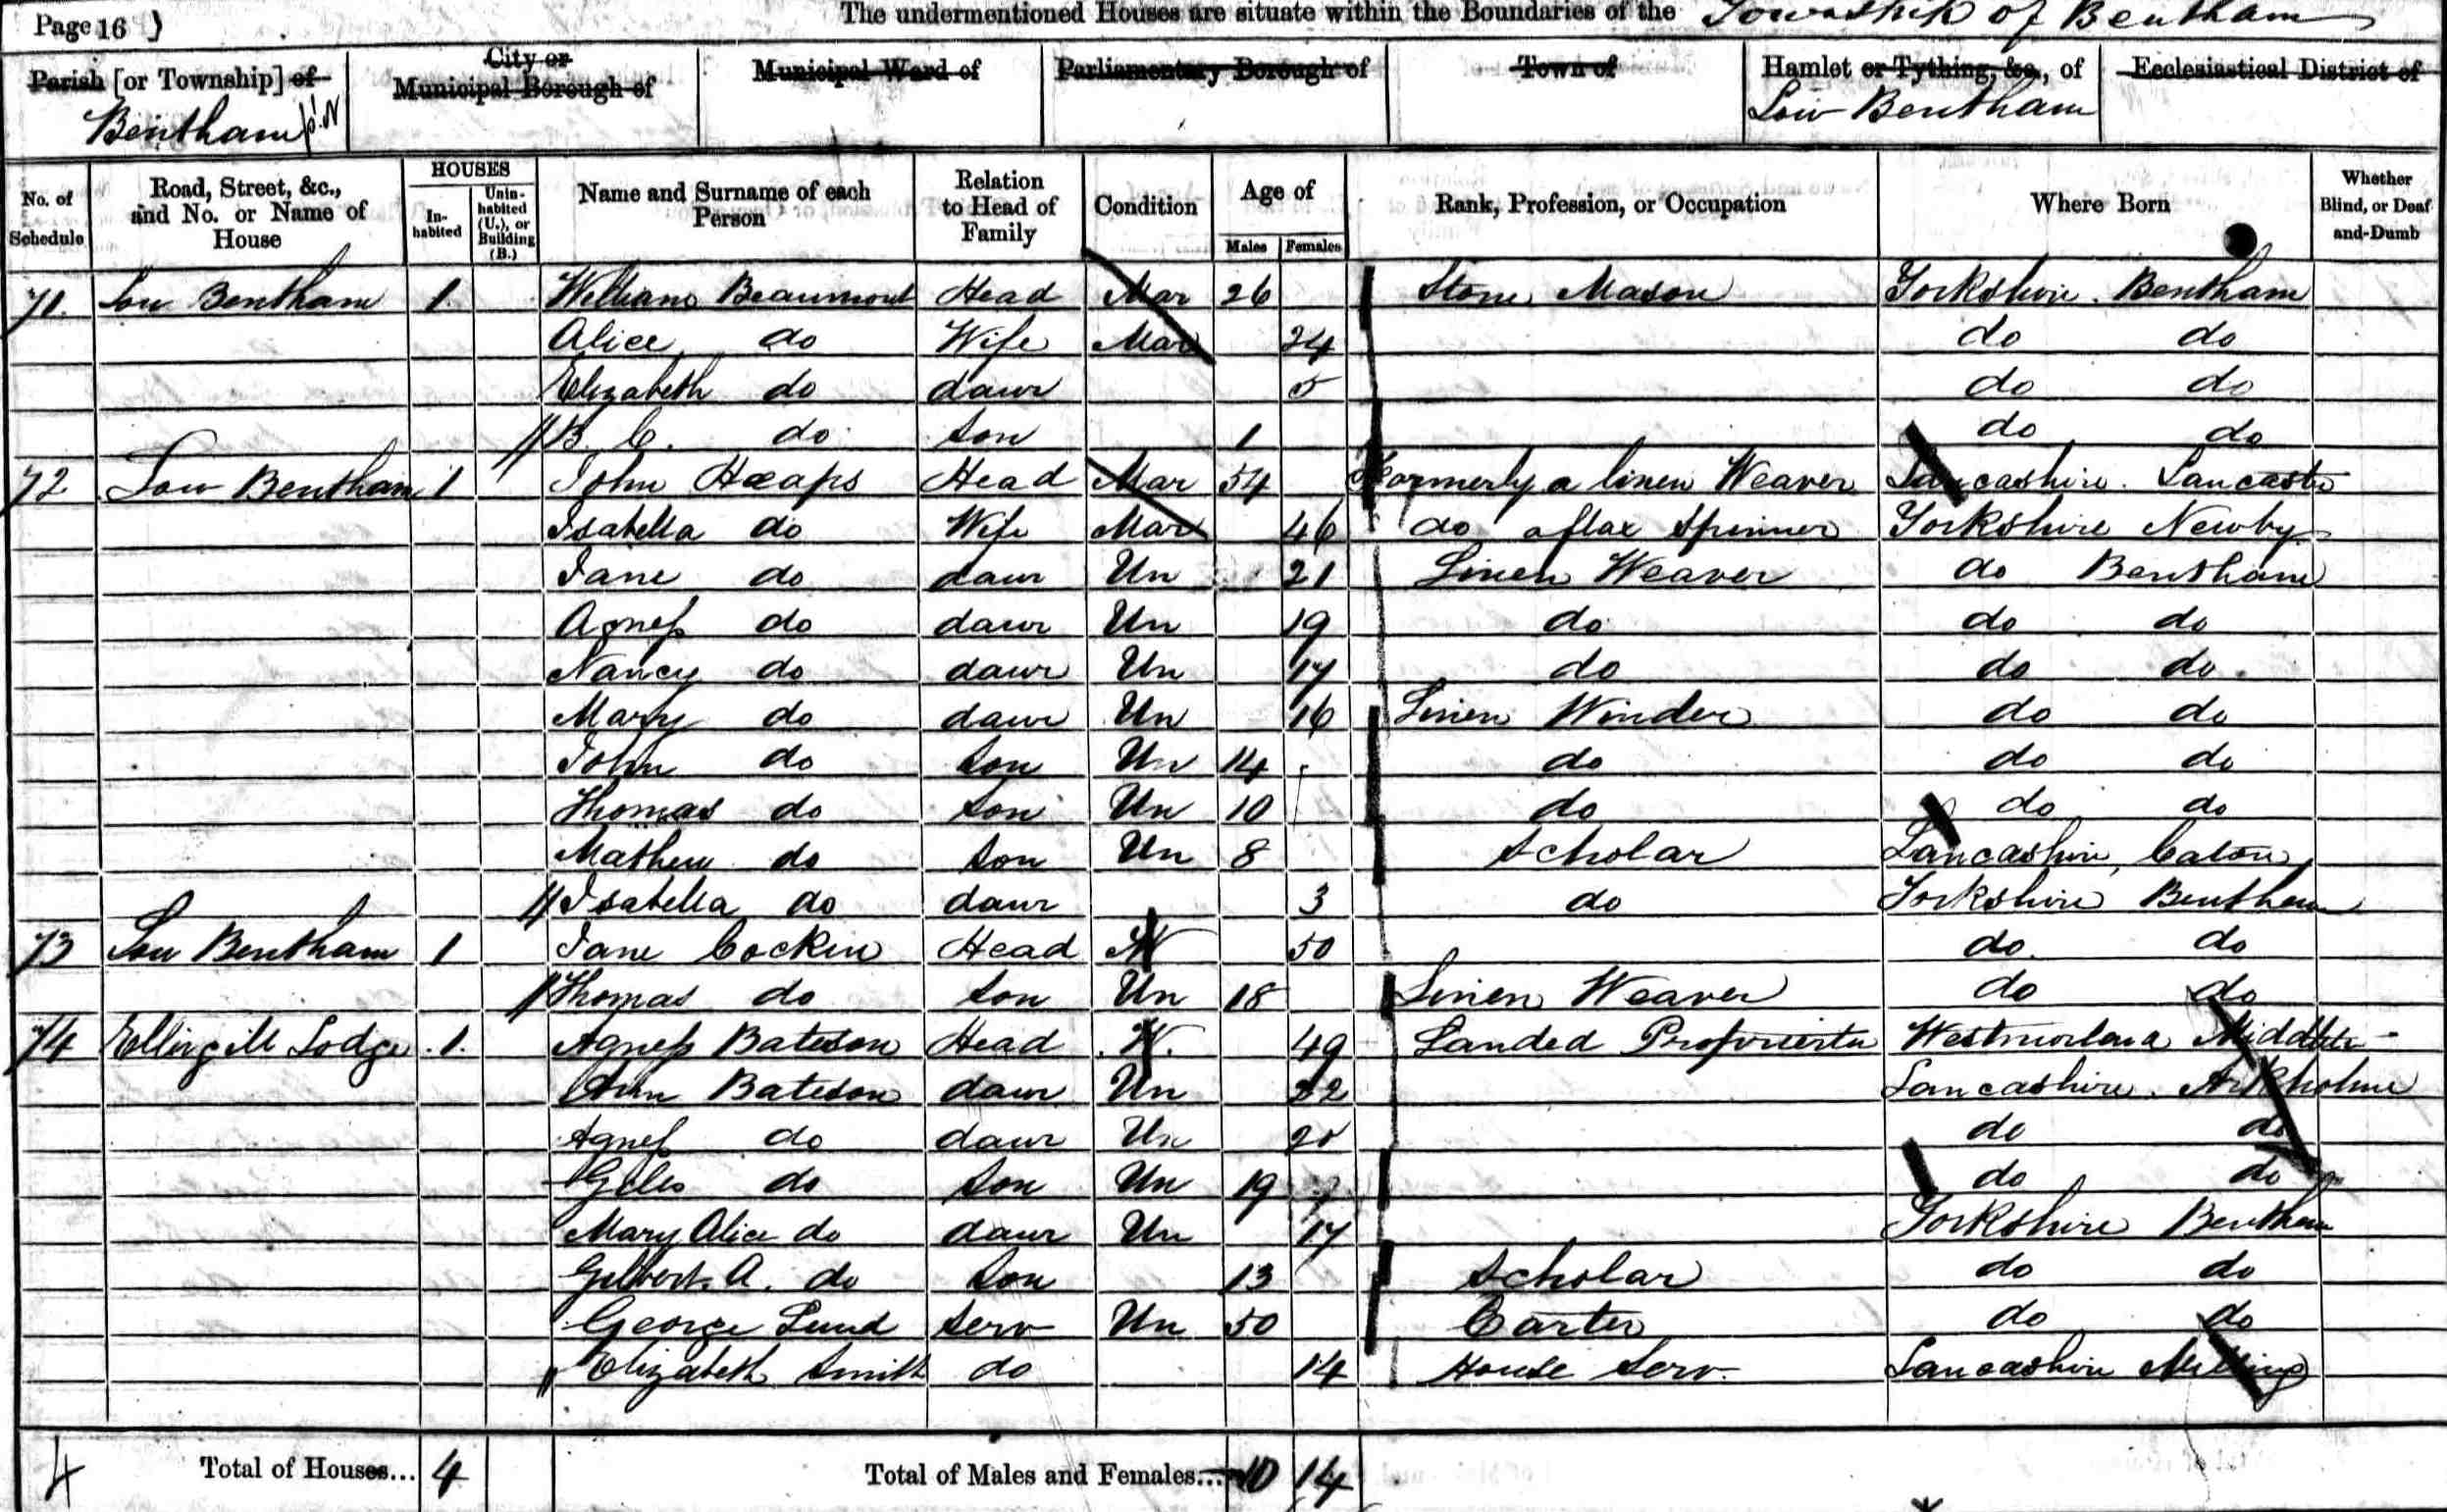 Page 16 ) The undermentioned Houses are situate within the Boundaries of the Township of Bentham
Parish [or Township] of City or Municipal Borough of Municipal Ward of Parliamentary Borough of Town of Hamlet or Tything, &c., of Ecclesiastical District of
Bentham Low Bentham
No. of Schedule Road, Street, &c., and No. or Name of House HOUSES Inhabited Uninhabited (U.), or Building (B.) Name and Surname of each Person Relation to Head of Family Condition Age of Males Females Rank, Profession, or Occupation Where Born Whether Blind, or Deaf and-Dumb
71 Low Bentham 1 William Beaumont Head Mar 26 Stone Mason Yorkshire Bentham
Alice do Wife Mar 24 do do
Elizabeth do daur 5 do do
B. C. do son 1 do do
72 Low Bentham 1 John Heaps Head Mar 54 Formerly a linen Weaver Lancashire Lancaster
Isabella do Wife Mar 46 do a flax Spinner Yorkshire Newby
Jane do daur Un 21 Linen Weaver do Bentham
Agness do daur Un 19 do do do
Nancy do daur Un 17 do do do
Mary do daur Un 16 Linen Winder do do
John do son Un 14 do do do
Thomas do son Un 10 do do do
Mathew do son Un 8 Scholar Lancashire, Caton
Isabella do daur 3 do Yorkshire Bentham
73 Low Bentham 1 Jane Cockin Head W 50 do do
Thomas do son Un 18 Linen Weaver do do
74 Ellergill Lodge 1 Agness Bateson Head W. 49 Landed Proprietor Westmorland Middleton
Ann Bateson daur Un 22 Lancashire Arkholme
Agness do daur Un 20 do do
Giles do son Un 19 do do
Mary Alice do daur Un 17 Yorkshire Bentham
Gilbert A. do son 13 Scholar do do
George Lund Serv Un 50 Carter do do
Elizabeth Smith do 14 House Serv. Lancashire Melling
4 Total of Houses... 4 Total of Males and Females... 10 14